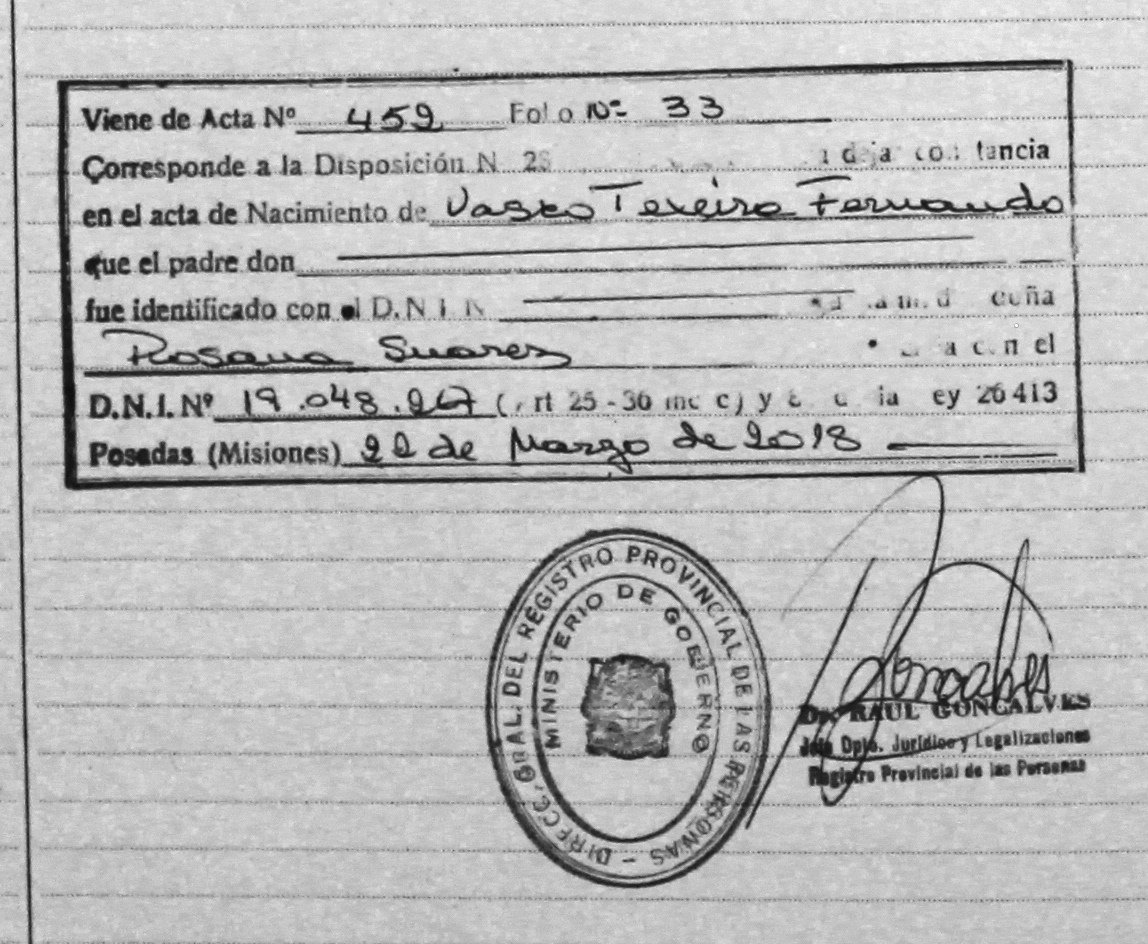 Viene de Acta Nº 459 Folo Nº 33
Corresponde a la Disposición N 28 deja constancia
en el acta de Nacimiento de Vasco Texeira Fernando
que el padre don
fue identificado con el D.N.I. N
Rosana Suarez con el
D.N.I. Nº 19.048.267 (Art 25 - 36 inc c) y ley 26413
Posadas (Misiones) 22 de Marzo de 2018
DIRECC. GRAL. DEL REGISTRO PROVINCIAL DE LAS PERSONAS -
MINISTERIO DE GOBIERNO
Goncalves
Dr. RAUL GONCALVES
Jefe Dpto. Jurídico y Legalizaciones
Registro Provincial de las Personas